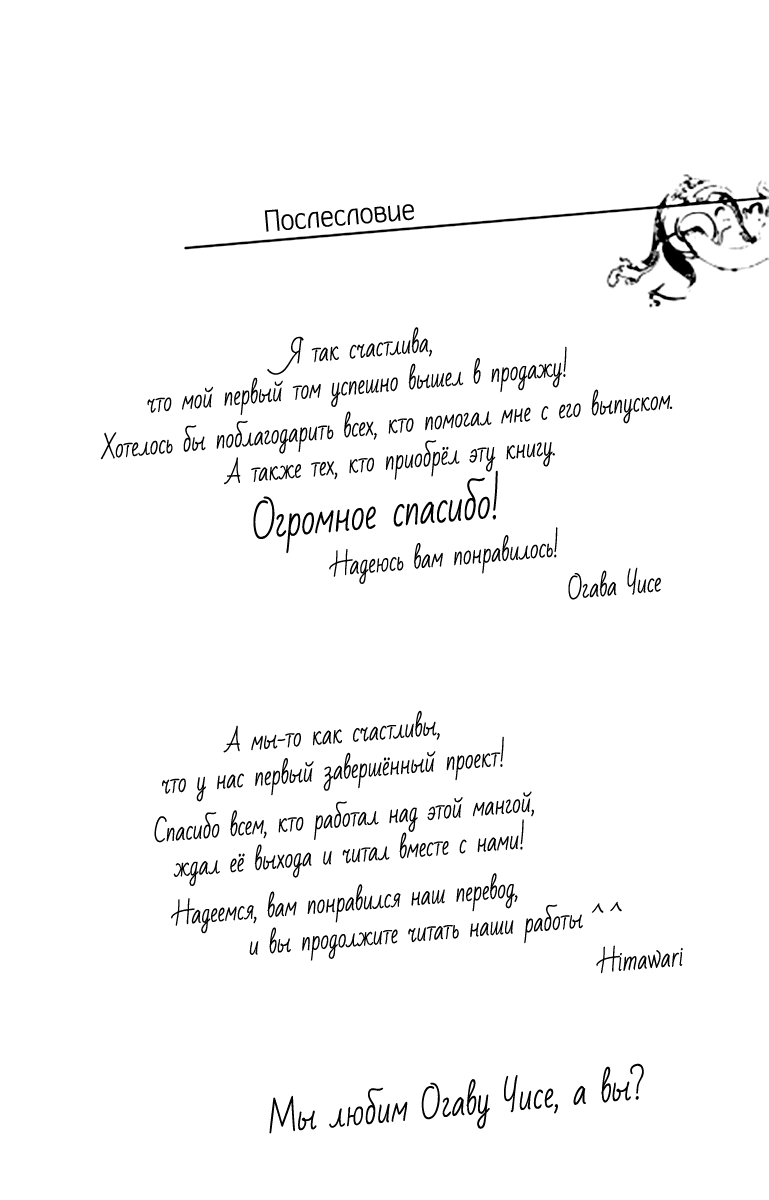 Послесловие
Я так счастлива,
что мой первый том успешно вышел в продажу!
Хотелось бы поблагодарить всех, кто помогал мне с его выпуском.
А также тех, кто приобрёл эту книгу.
Огромное спасибо!
Надеюсь вам понравилось!
Огава Чисе
А мы-то как счастливы,
что у нас первый завершённый проект!
Спасибо всем, кто работал над этой мангой,
ждал её выхода и читал вместе с нами!
Надеемся, вам понравился наш перевод,
и вы продолжите читать наши работы ^ ^
Himawari
Мы любим Огаву Чисе, а вы?